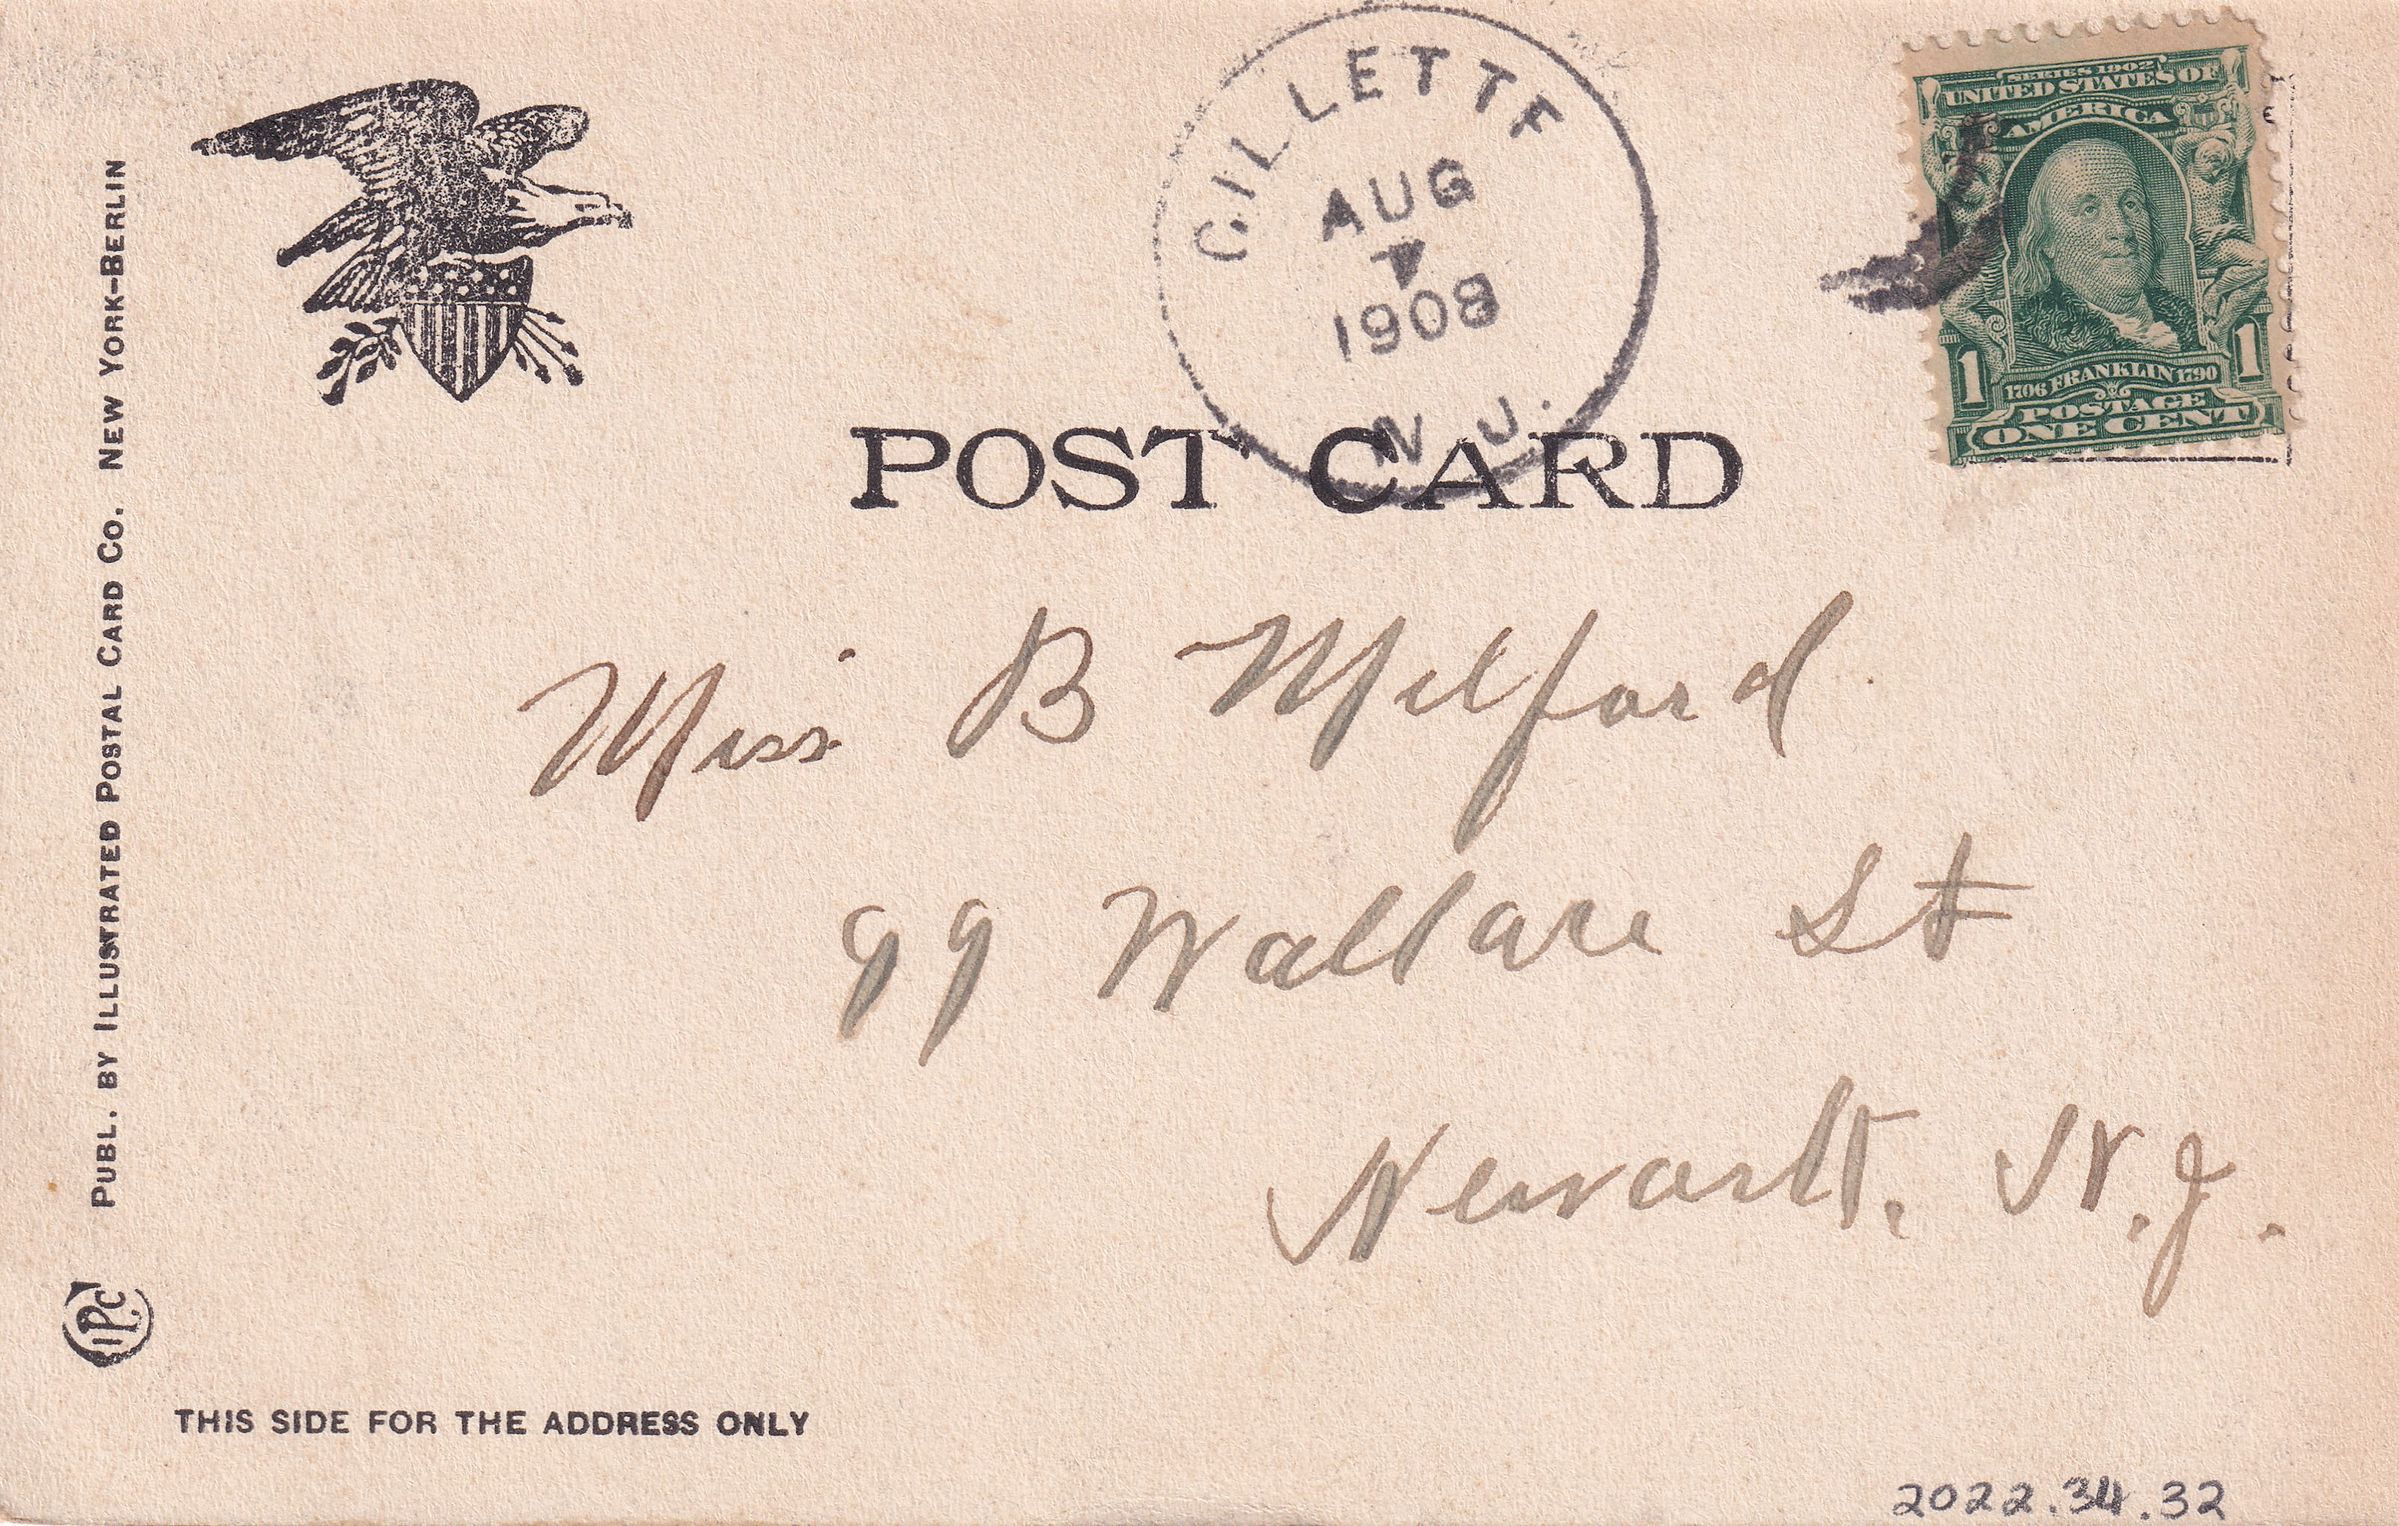 GILLETTE
AUG
7
1908
N. J.
SERIES 1902
UNITED STATES OF
AMERICA
1706 FRANKLIN 1790
1 1
POSTAGE
ONE CENT
POST CARD
Miss B Milford
99 Wallace St
Newark. N.J.
PUBL. BY ILLUSTRATED POSTAL CARD CO. NEW YORK–BERLIN
IPC
THIS SIDE FOR THE ADDRESS ONLY
2022.34.32